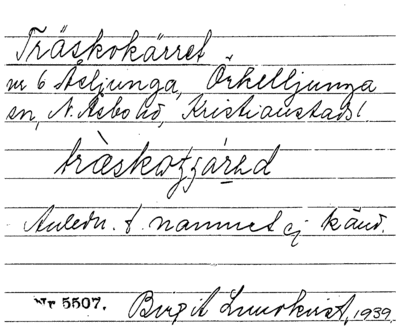 Träskokärret
nr 6 Åsljunga, Örkelljunga
sn, N. Åsbo hd, Kristianstads l.
Anledn. t. namnet ej känd.
Nr 5507. Birgit Lundkvist, 1939